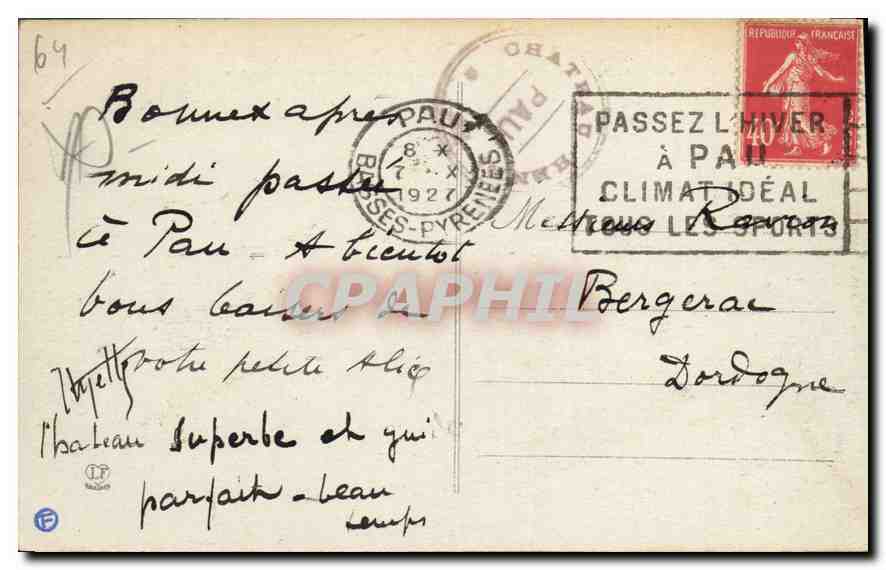 64
Bonne après
midi passée
à Pau A bientot
bons baisers de
votre petite Alice
Chateau superbe et
parfait - beau
temps
PAU
8 X
7 X
1927
BASSES-PYRENEES
CHATEAU
PAU
REPUBLIQUE FRANÇAISE
40
PASSEZ L'HIVER
À PAU
CLIMAT IDÉAL
TOUS LES SPORTS
Messieurs
Bergerac
Dordogne
CPAPHIL
LF
F